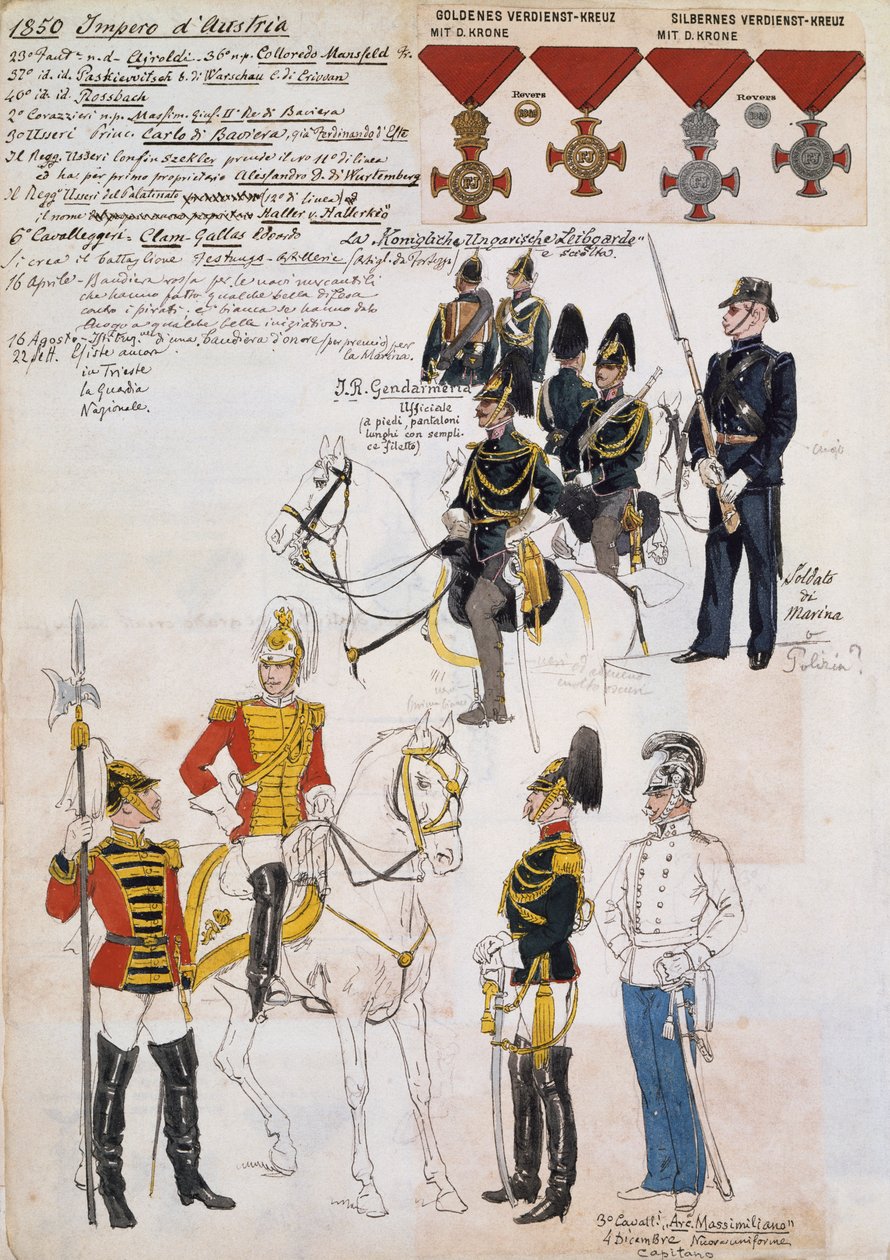 1850 Impero d'Austria
23º Fant. n.d. Airoldi. 36º n.p. Colloredo Mansfeld Fr.
37º id. id. Paskiewitsch di Warschau C. di Erivan
40º id. id. Rossbach
2º Corazzieri n.p. Massim. Gius. IIº Re di Baviera
3º Usseri Princ. Carlo di Baviera, già Ferdinando d'Este
Il Regg. Usseri Confin. Szekler prende il nro 11º di linea
ed ha per primo proprietario Alessandro D. di Wurtemberg
Il Regg. Usseri del Palatinato (12º di linea)
il nome Haller v. Hallerkeö
6º Cavalleggeri - Clam-Gallas Edoardo
Si crea il battaglione Festungs-Artillerie (Artigl. da Fortezza)
16 Aprile - Bandiera rossa per le navi mercantili
che hanno fatto qualche bella difesa
contro i pirati. e bianca se hanno dato
luogo a qualche bella iniziativa.
16 Agosto - di una bandiera d'onore (per premio) per
la Marina.
22 Esiste ancor
in Trieste
la Guardia
Nazionale.
GOLDENES VERDIENST-KREUZ
MIT D. KRONE
SILBERNES VERDIENST-KREUZ
MIT D. KRONE
Revers
1849
Revers
1849
FJ
FJ
FJ
FJ
La "Königliche Ungarische Leibgarde"
e scolta.
I.R. Gendarmeria
Ufficiale
(a piedi, pantaloni
lunghi con sempli-
ce filetto)
Soldato
di
Marina
o
Polizia?
molto oscuri
3º Cavall. "Arc. Massimiliano"
4 Dicembre Nuova uniforme
Capitano